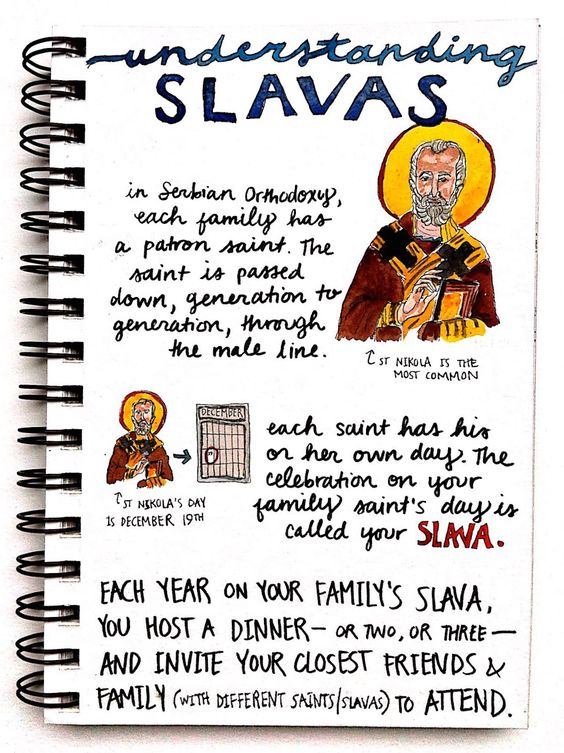 understanding
SLAVAS
in Serbian Orthodoxy,
each family has
a patron saint. The
saint is passed
down, generation to
generation, through
the male line.
↑ST NIKOLA IS THE
MOST COMMON
DECEMBER
↑ST NIKOLA'S DAY
IS DECEMBER 19TH
each saint has his
or her own day. The
celebration on your
family saint's day is
called your SLAVA.
EACH YEAR ON YOUR FAMILY'S SLAVA,
YOU HOST A DINNER— OR TWO, OR THREE—
AND INVITE YOUR CLOSEST FRIENDS &
FAMILY (WITH DIFFERENT SAINTS/SLAVAS) TO ATTEND.